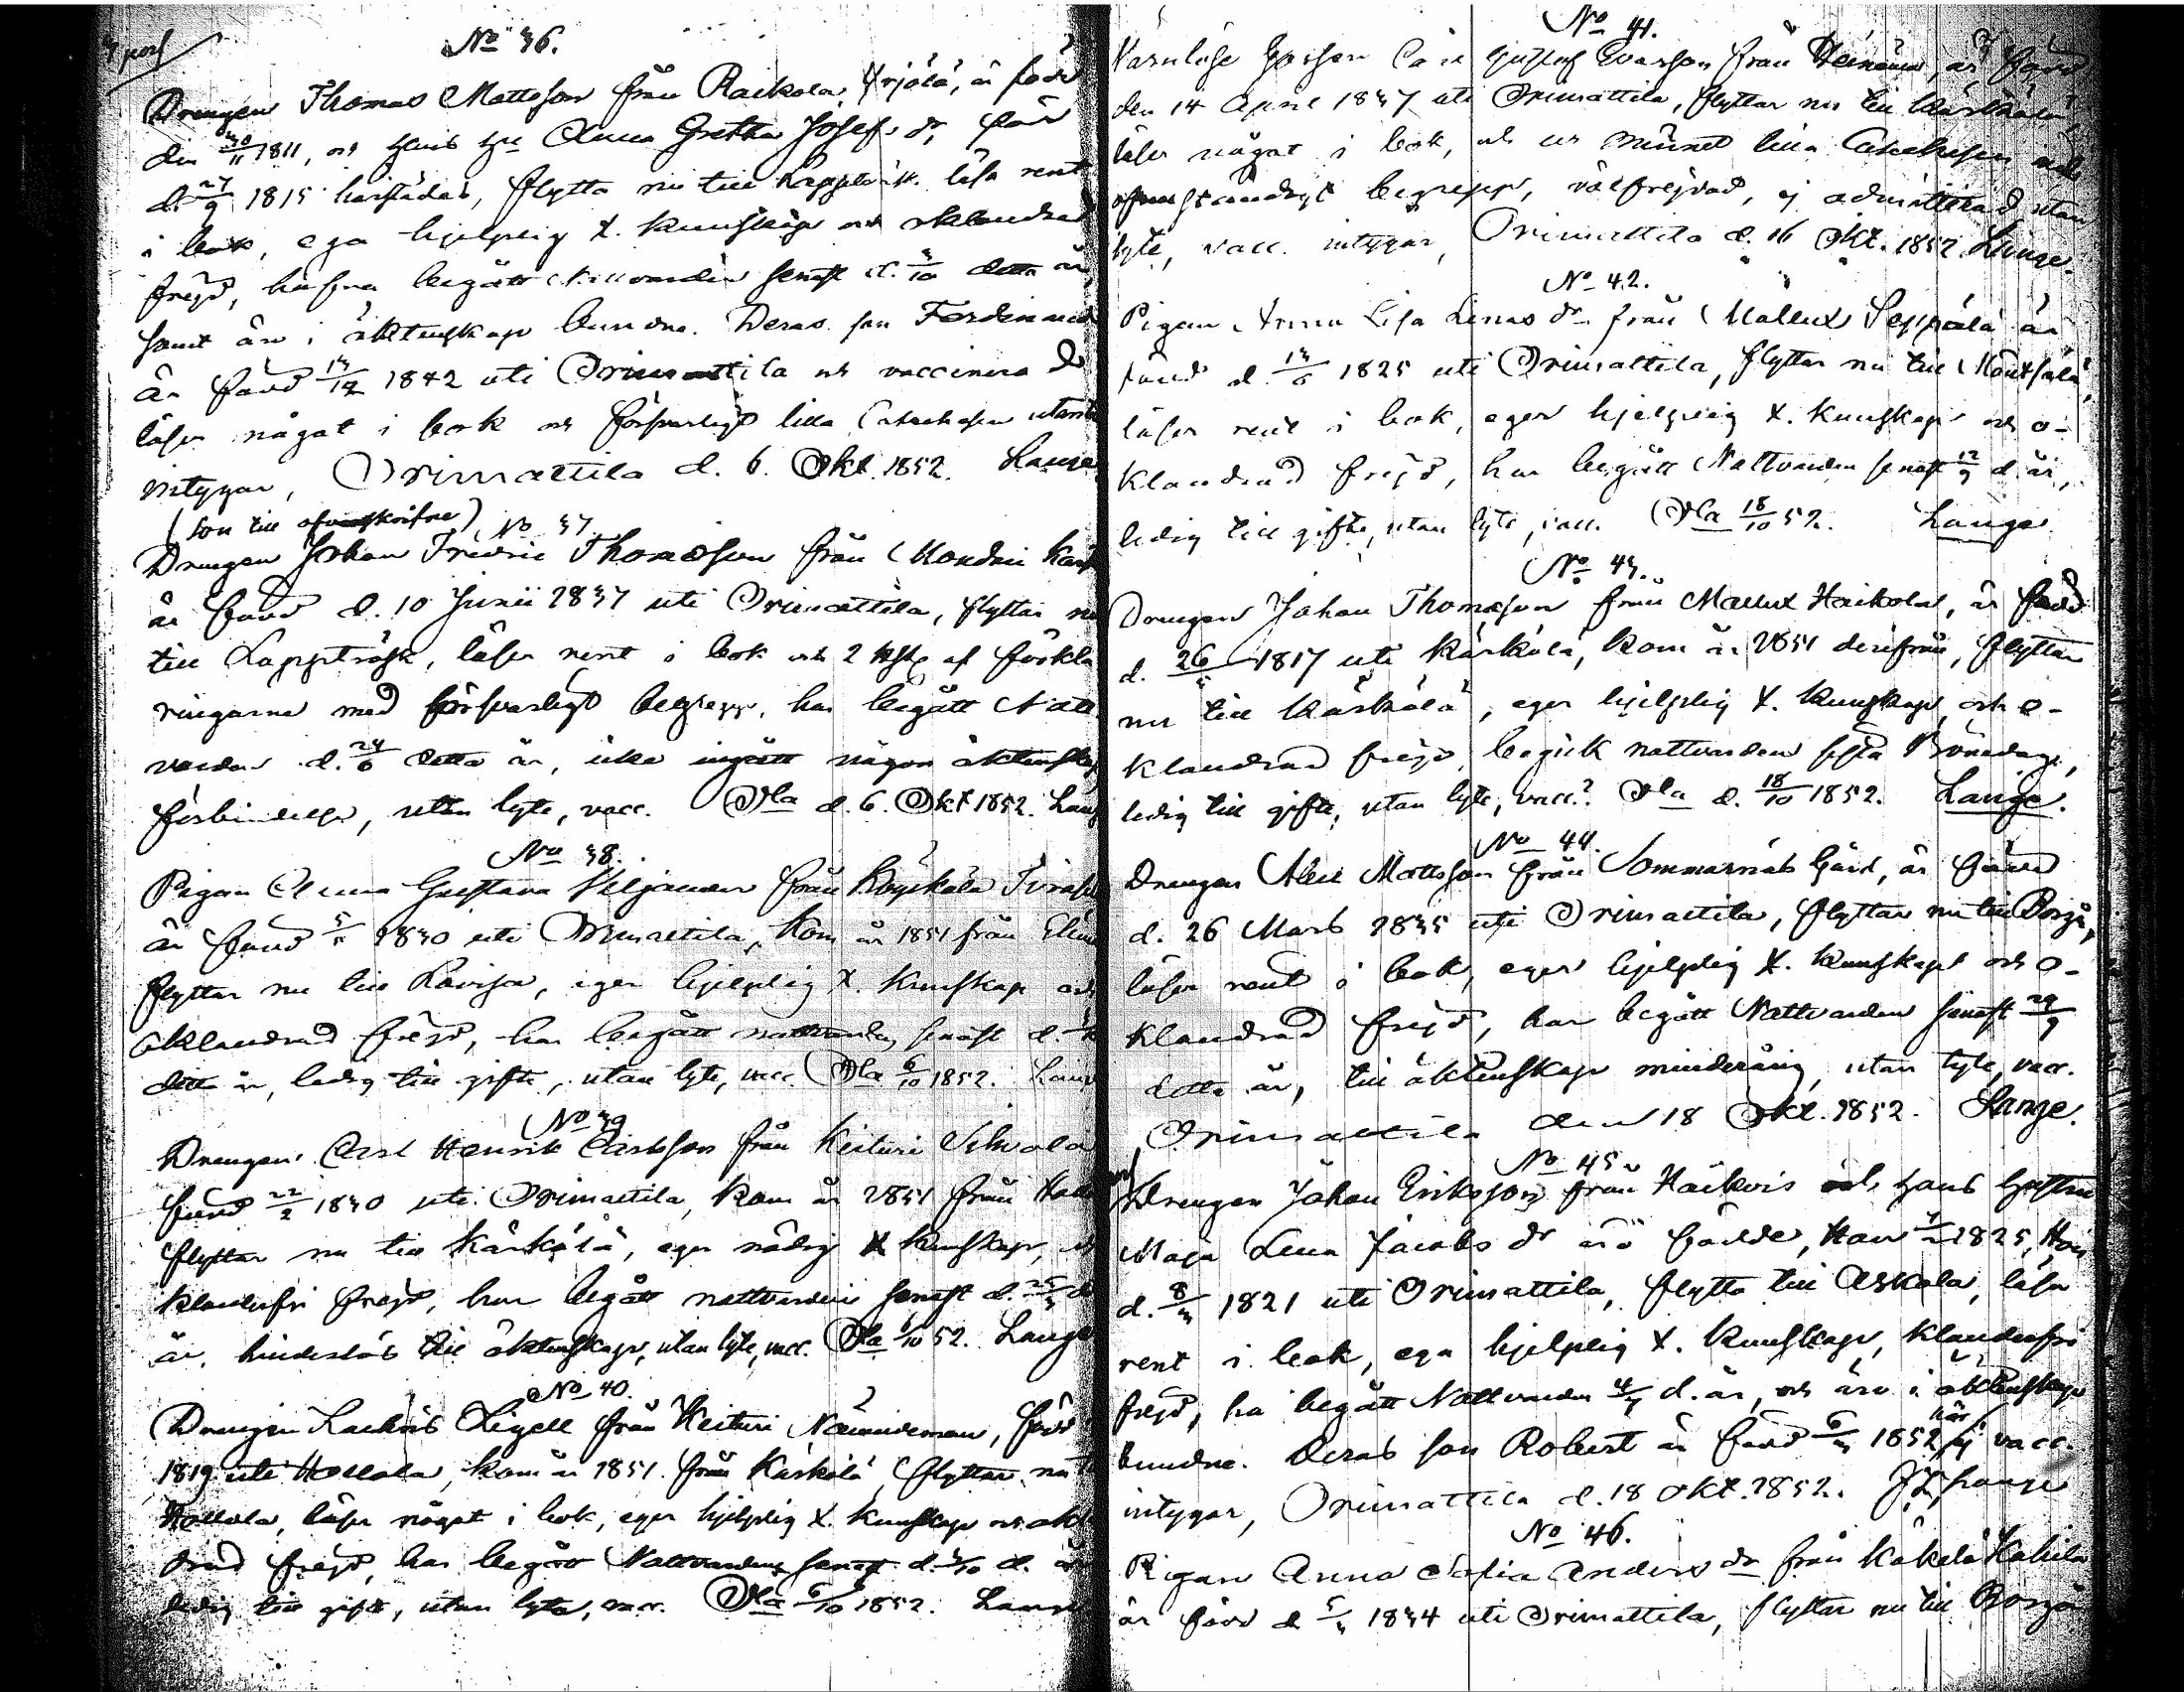 No 36.
Drengen Thomas Mattsson från Raikola Yrjölä, är född
den 30/11 1811, och hans h:u Anna Gretha Josefs dr, född
d. 27/9 1815 härstädes, flytta nu till Lappträsk. läsa rent
i bok, ega hjelplig X. kunskap och oklandrad
frejd, hafva begått Nattvarden senast d. 3/10 detta år,
samt äro i äktenskap bundne. Deras son Ferdinand
är född 13/12 1842 uti Orimattila och vaccinerad
läser något i bok och försvarligt lilla Catechesen utantill
intygar, Orimattila d. 6. Okt. 1852. Lange
(son till ofvanskrifne) No 37
Drengen Johan Fredric Thomasson från Mondrii Kar
är född d. 10 Junii 1837 uti Orimattila, flyttar nu
till Lappträsk, läser rent i bok och 2 af förkla
ringarna med försvarligt begrepp, har begått Natt
varden d. 24/6 detta år, icke ingått någon äktenskaps
förbindelse, utan lyte, vacc. Ola d. 6. Okt 1852. Lang
No 38.
Pigan Anna Gustava Viljander från Böyskälä
är född 5/5 1830 uti Orimattila, kom år 1851 från Elimä
flyttar nu till Kovisa, eger hjelplig X. kunskap och
oklandrad frejd, har begått nattvarden senast d.
detta år, ledig till gifte, utan lyte, vacc. Ola 6/10 1852. Lange
No 39
Drengen Carl Henrik Carlsson från Keituri Sihvola
född 22/2 1830 uti Orimattila, kom år 1851 från
flyttar nu till Kärkölä, eger nödig X kunskap, och
klanderfri frejd, har begått nattvarden senast d. 25/3 d
år, hinderslös till äktenskap, utan lyte, vacc. Ola 6/10 52. Lange
No 40.
Drengen Zigell från Keituri Nämndeman, född
1819 uti Hollola, kom år 1851 från Kärkölä, flyttar nu t
Hollola, läser något i bok, eger hjelplig X. kunskap och okl
drad frejd, har begått Nattvarden senast d. 3/10 d. år
ledig till gifte, utan lyte, vacc. Ola 6/10 1852. Lange
No 41.
Värnlöse Gossen Carl Gustaf Evasson från Heinämä, är född
den 14 April 1837 uti Orimattila, flyttar nu till Kärkölä
läser något i bok, och ur minnet lilla Catechesen med
ofullständigt begrepp, välfrejdad, ej admitterad, utan
lyte, vacc. intygar, Orimattila d. 16 Okt. 1852. Lange.
No 42.
Pigan Anna Lisa Linus dr från Mallux Seppälä är
född d. 13/6 1825 uti Orimattila, flyttar nu till Mäntsälä,
läser rent i bok, eger hjelplig X. kunskap och o-
klandrad frejd, har begått Nattvarden senast 12/9 d. år,
ledig till gifte, utan lyte, vacc. Ola 18/10 52. Lange.
No 43.
Drengen Johan Thomasson från Mallux Haikola, är född
d. 26/5 1817 uti Kärkölä, kom år 1851 derifrån, flyttar
nu till Kärkölä, eger hjelplig X. kunskap och o-
klandrad frejd, begick nattvarden sista Bönedag,
ledig till gifte, utan lyte, vacc.? Ola d. 18/10 1852. Lange.
No 44.
Drengen Alex Mattsson från Sommarnäs Gård, är född
d. 26 Mars 1835 uti Orimattila, flyttar nu till Borgå,
läser rent i bok, eger hjelplig X. kunskap och o-
klandrad frejd, har begått Nattvarden senast 29/9
detta år, till äktenskap minderårig, utan lyte, vacc.
Orimattila den 18 Okt. 1852. Lange.
No 45.
Drengen Johan Eriksson från Häikvis och hans hustru
Maja Lena Jacobs dr äro födde, Han 1825, Hon
d. 8/3 1821 uti Orimattila, flytta till Askola, läsa
rent i bok, ega hjelplig X. kunskap, klanderfri
frejd, ha begått Nattvarden 4/7 d. år, och äro i äktenskap
bundne. Deras son Robert är född 6/3 1852 här, ej vacc.
intygar, Orimattila d. 18 Okt. 1852. Lange
No 46.
Pigan Anna Sofia Anders dr från Käkelä
är född d 5/3 1834 uti Orimattila, flyttar nu till Borgå